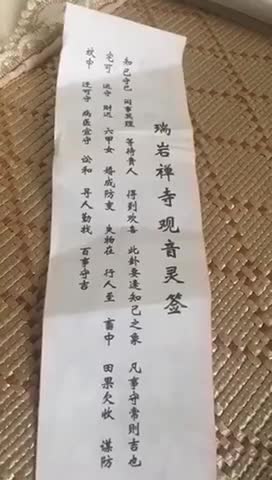 瑞岩禅寺观音灵签
知己守己 问事莫理 等待贵人 得到欢喜 此卦要逢知己之象 凡事守常则吉也
宅可 运守 财迟 六甲女 婚成防变 失物在 行人至 畜中 田果欠收 谋防
蚊中 逢可守 病医宜守 讼和 寻人勤找 百事守吉